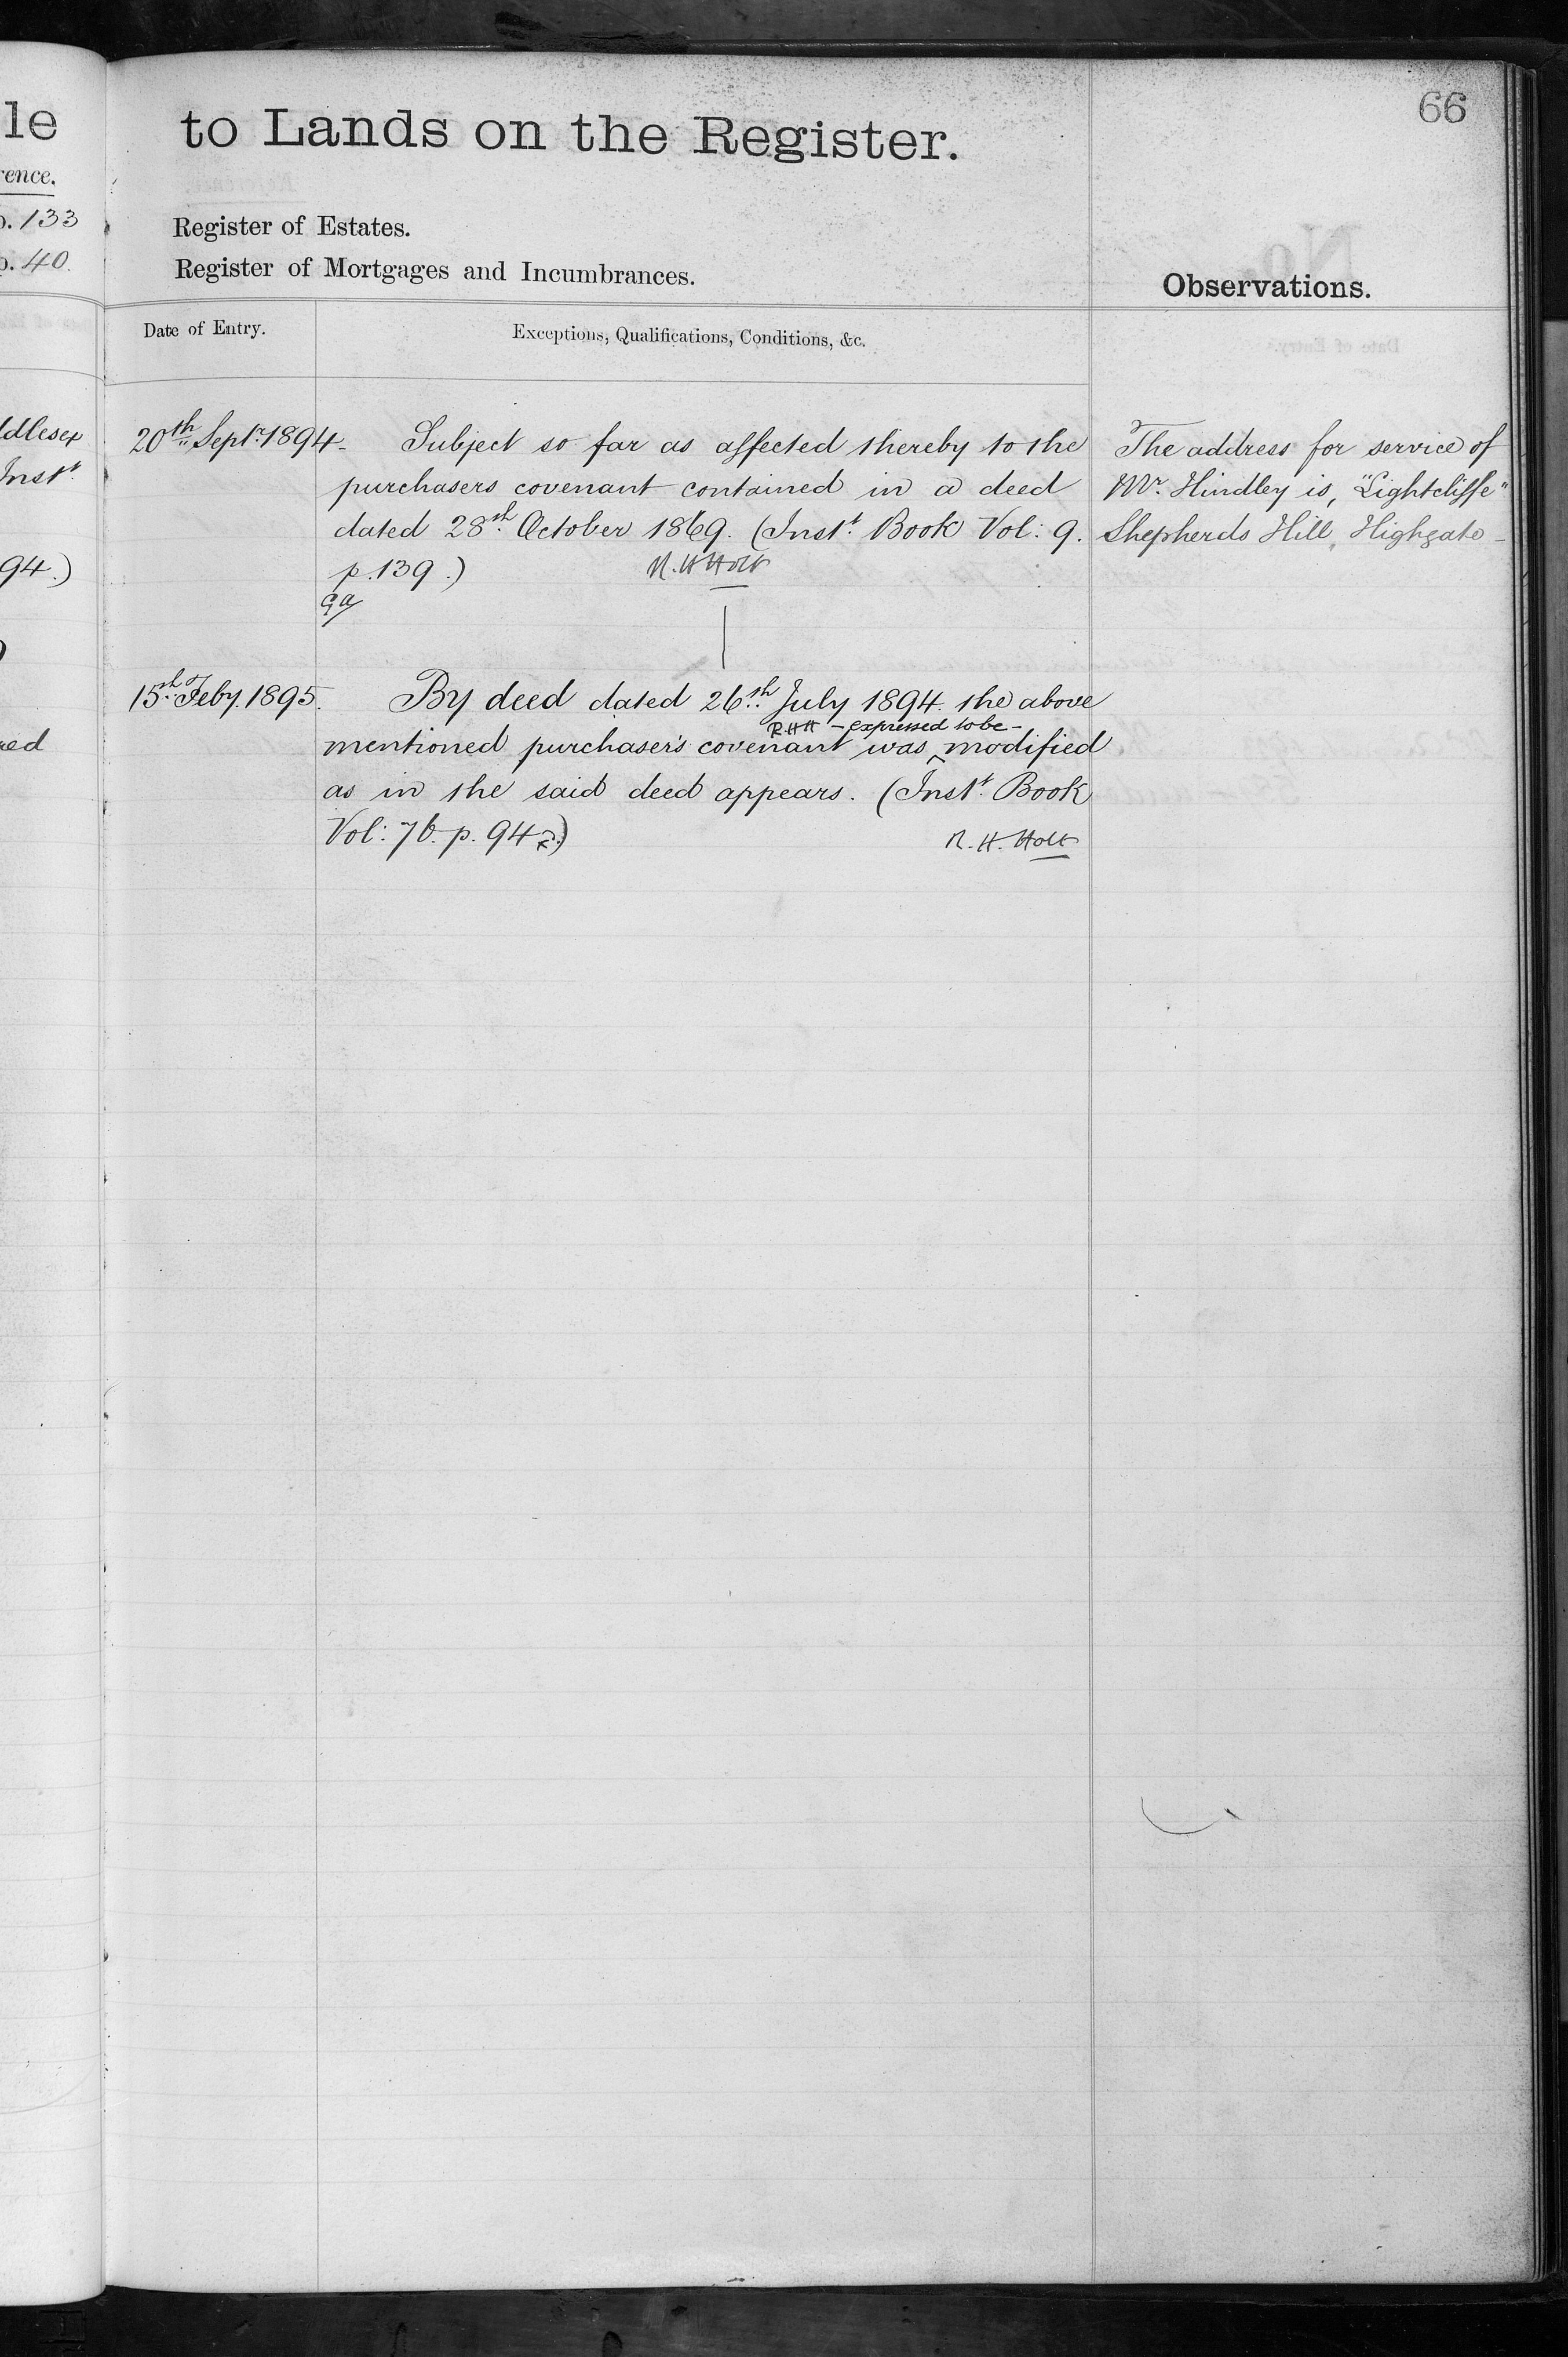 le
rence.
o. 133
o. 40.
ddlesex
Inst.t
94.)
to Lands on the Register.
66
Register of Estates.
Register of Mortgages and Incumbrances.
Observations.
Date of Entry.
Exceptions, Qualifications, Conditions, &c.
20th Septr. 1894-
Subject so far as affected thereby to the
purchasers covenant contained in a deed
dated 28th October 1869. (Inst.t Book Vol: 9.
p. 139.) R.H Holt
The address for service of
Mr. Hindley is, "Lightcliffe"
Shepherds Hill, Highgate-
15th Feby. 1895.
By deed dated 26th July 1894. the above
R.H.H -expressed to be-
mentioned purchaser's covenant was ^ modified
as in the said deed appears. (Inst.t Book
Vol: 76. p. 94)
R. H. Holt